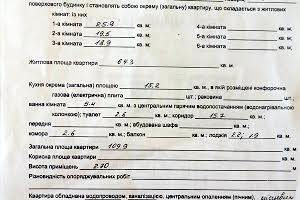 поверхового будинку і становлять собою окрему (загальну) квартиру, що складається з житлових
кімнат: із них
1-а кімната 25.9 кв. м; 4-а кімната кв. м;
2-а кімната 19.5 кв. м; 5-а кімната кв. м;
3-а кімната 18.9 кв. м; 6-а кімната кв. м;
Житлова площа квартири 64.3 кв. м.
Кухня окрема (загальна) площею 15.2 кв. м, в якій розміщені комфорочна
газова (електрична) плита шт.; раковина шт.
ванна кімната 5.4 кв. м з центральним гарячим водопостачанням (водонагрівальною
колонкою); туалет 2.6 кв. м; коридор 15.7 кв. м;
передня кв. м; вбудована шафа кв. м;
комора 2.6 кв. м; балкон кв. м; лоджія 2.2; 1.9 кв. м
Загальна площа квартири 109.9 кв. м.
Корисна площа квартири кв. м.
Висота приміщень 2.70 м.
Різновиди опоряджувальних робіт
Квартира обладнана водопроводом, каналізацією, центральним опаленням (пічним),